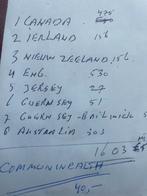 1 CANADA 475
2 IERLAND 156
3 NIEUW ZEELAND, 156
4 ENG. 530
5 JERSEY 27
6 GUERNSEY 51
7 GUERNSEY -
8 AUSTRALIA 303
1603
COMMONWEALTH
40,-